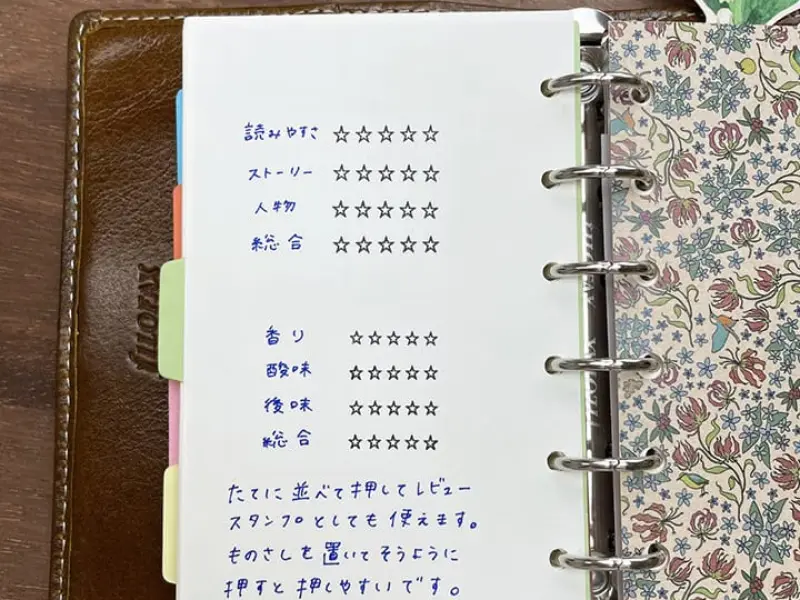 読みやすさ ☆☆☆☆☆
ストーリー ☆☆☆☆☆
人物 ☆☆☆☆☆
総合 ☆☆☆☆☆
香り ☆☆☆☆☆
酸味 ☆☆☆☆☆
後味 ☆☆☆☆☆
総合 ☆☆☆☆☆
たてに並べて押してレビュー
スタンプとしても使えます。
ものさしを置いてそうように
押すと押しやすいです。
filofax